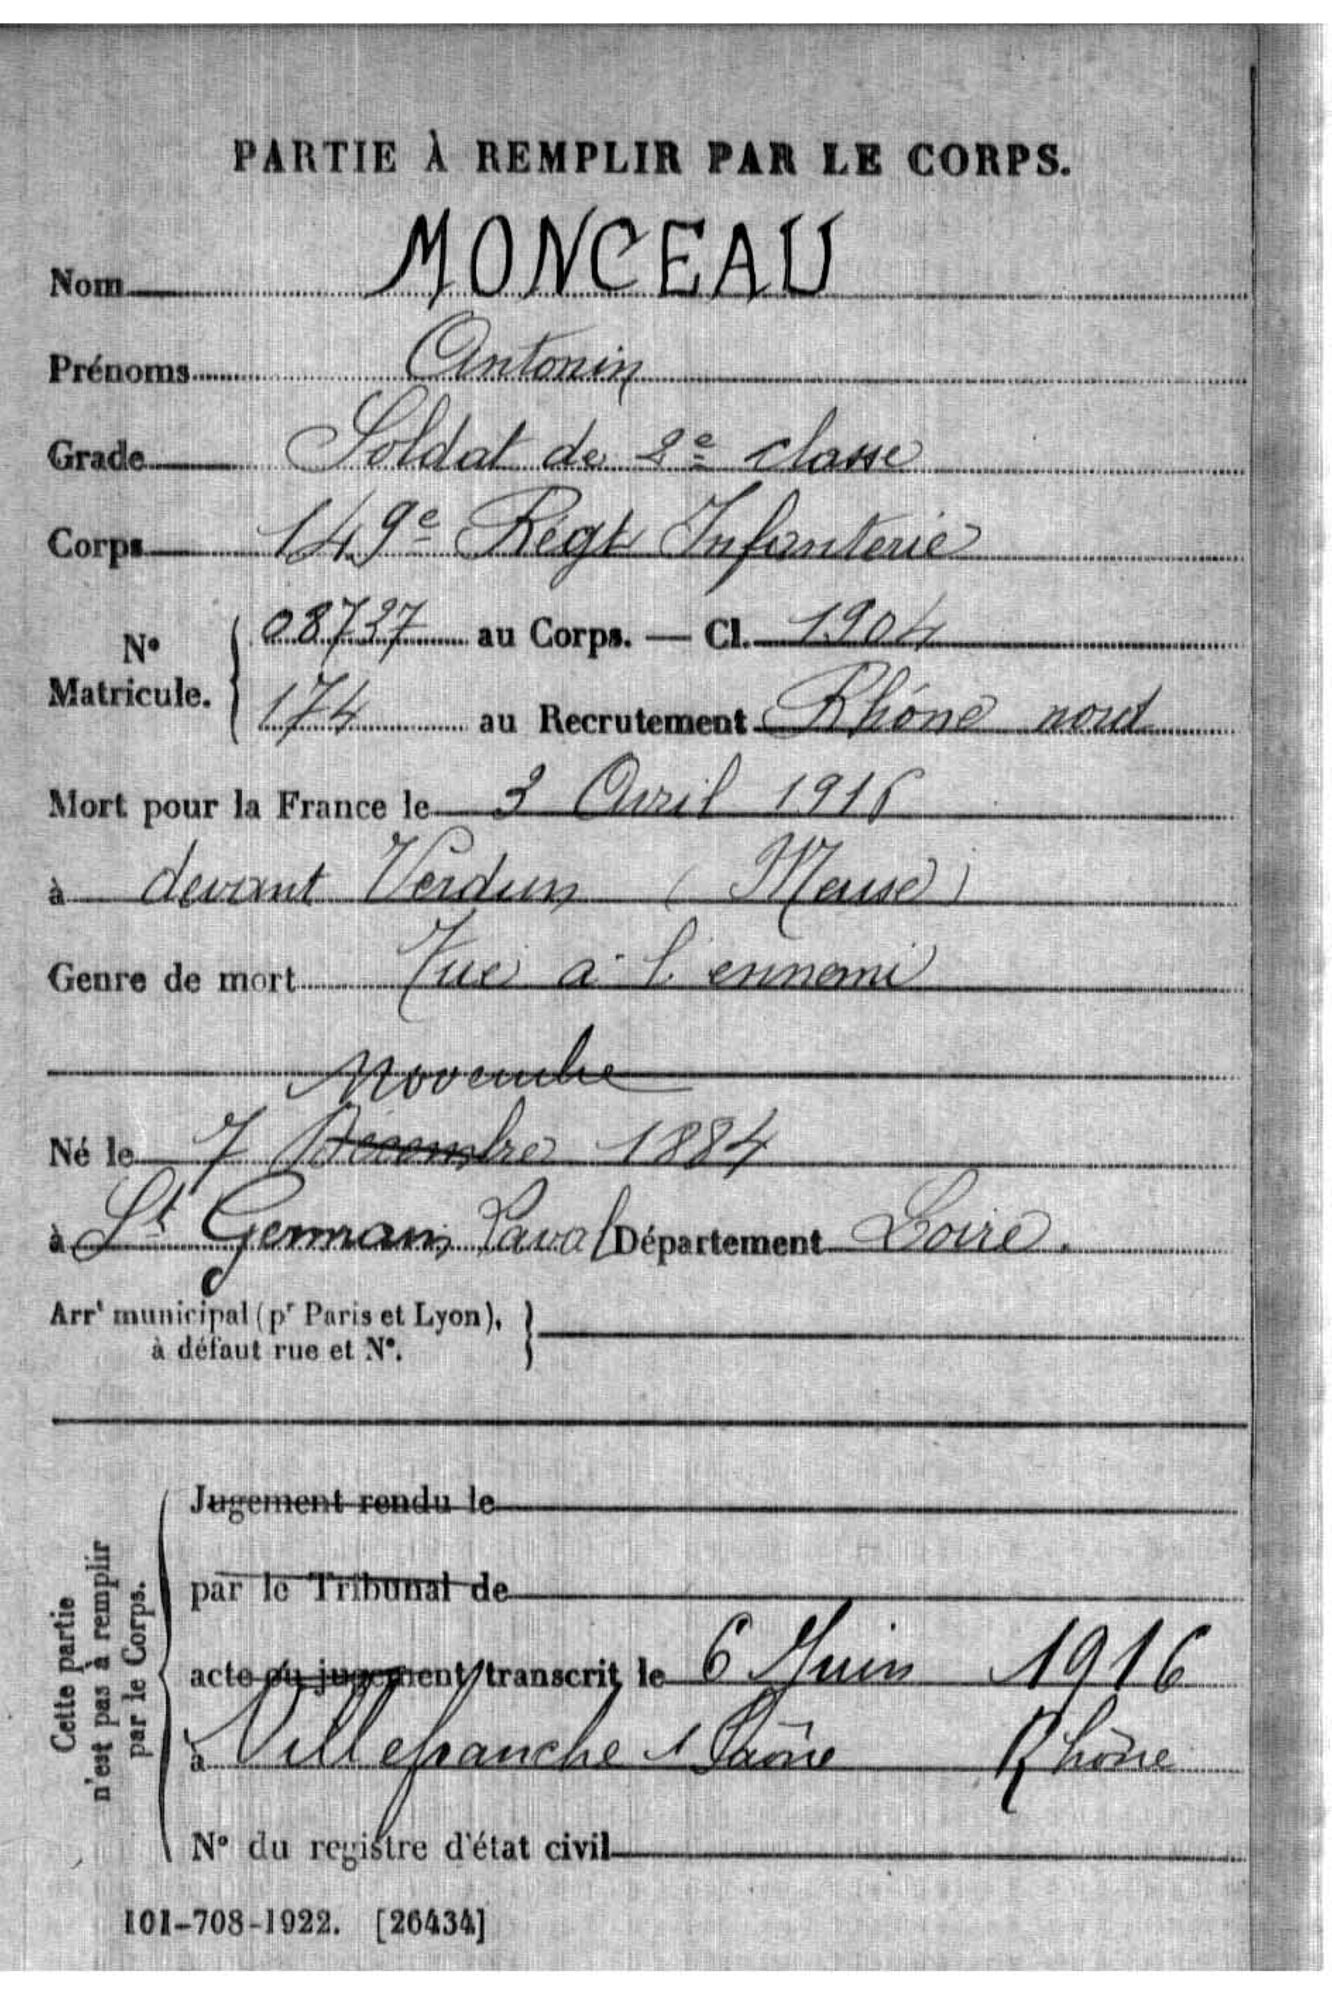 PARTIE À REMPLIR PAR LE CORPS.
Nom MONCEAU
Prénoms Antonin
Grade Soldat de 2e classe
Corps 149e Régt Infanterie
N° Matricule. 08727 au Corps. — Cl. 1904
174 au Recrutement Rhône nord
Mort pour la France le 3 Avril 1916
à devant Verdun (Meuse)
Genre de mort Tué à l'ennemi
Novembre
Né le 7 Décembre 1884
à St Germain Laval Département Loire.
Arrt municipal (pr Paris et Lyon),
à défaut rue et N°.
Cette partie
n'est pas à remplir
par le Corps.
Jugement rendu le
par le Tribunal de
acte ou jugement transcrit le 6 Juin 1916
à Villefranche s Saône Rhône
N° du registre d'état civil
101-708-1922. [26434]